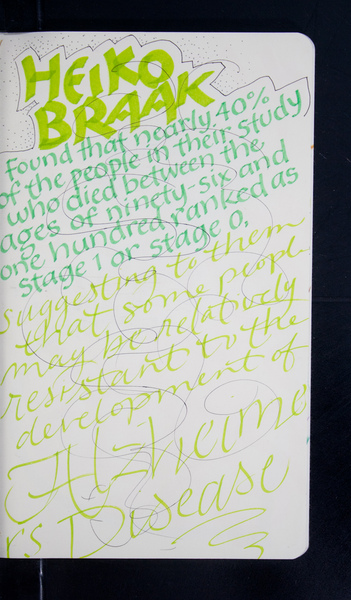 HEIKO
BRAAK
found that nearly 40%
of the people in their study
who died between the
ages of ninety-six and
one hundred ranked as
stage 1 or stage 0,
suggesting to them
that some people
may be relatively
resistant to the
development of
Alzheime
rs Disease